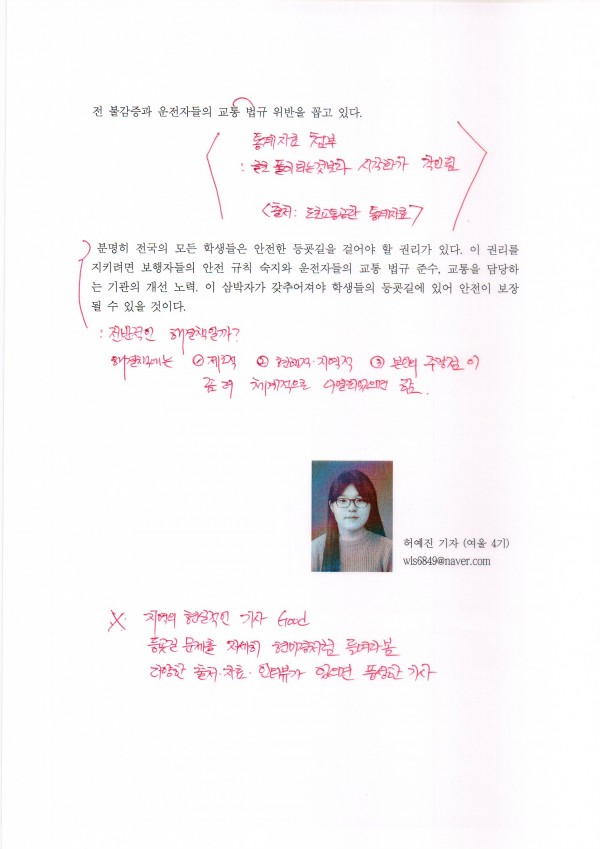 전 불감증과 운전자들의 교통 법규 위반을 꼽고 있다.
통계자료 첨부
: 글로 풀이되는것보다 시각화가 각인됨
<출처: 도로교통공단 통계자료>
분명히 전국의 모든 학생들은 안전한 등굣길을 걸어야 할 권리가 있다. 이 권리를
지키려면 보행자들의 안전 규칙 숙지와 운전자들의 교통 법규 준수, 교통을 담당하
는 기관의 개선 노력. 이 삼박자가 갖추어져야 학생들의 등굣길에 있어 안전이 보장
될 수 있을 것이다.
: 전반적인 해결책일까?
해결책에는 ① 제도적 ② 현행적·지역적 ③ 본인의 주장점 이
좀 더 체계적으로 나열되었으면 함.
허예진 기자 (여울 4기)
wls6849@naver.com
X. 지역의 현실적인 기사 Good
등굣길 문제를 자세히 현미경처럼 들여다봄
다양한 출처·자료·인터뷰가 있으면 풍성한 기사